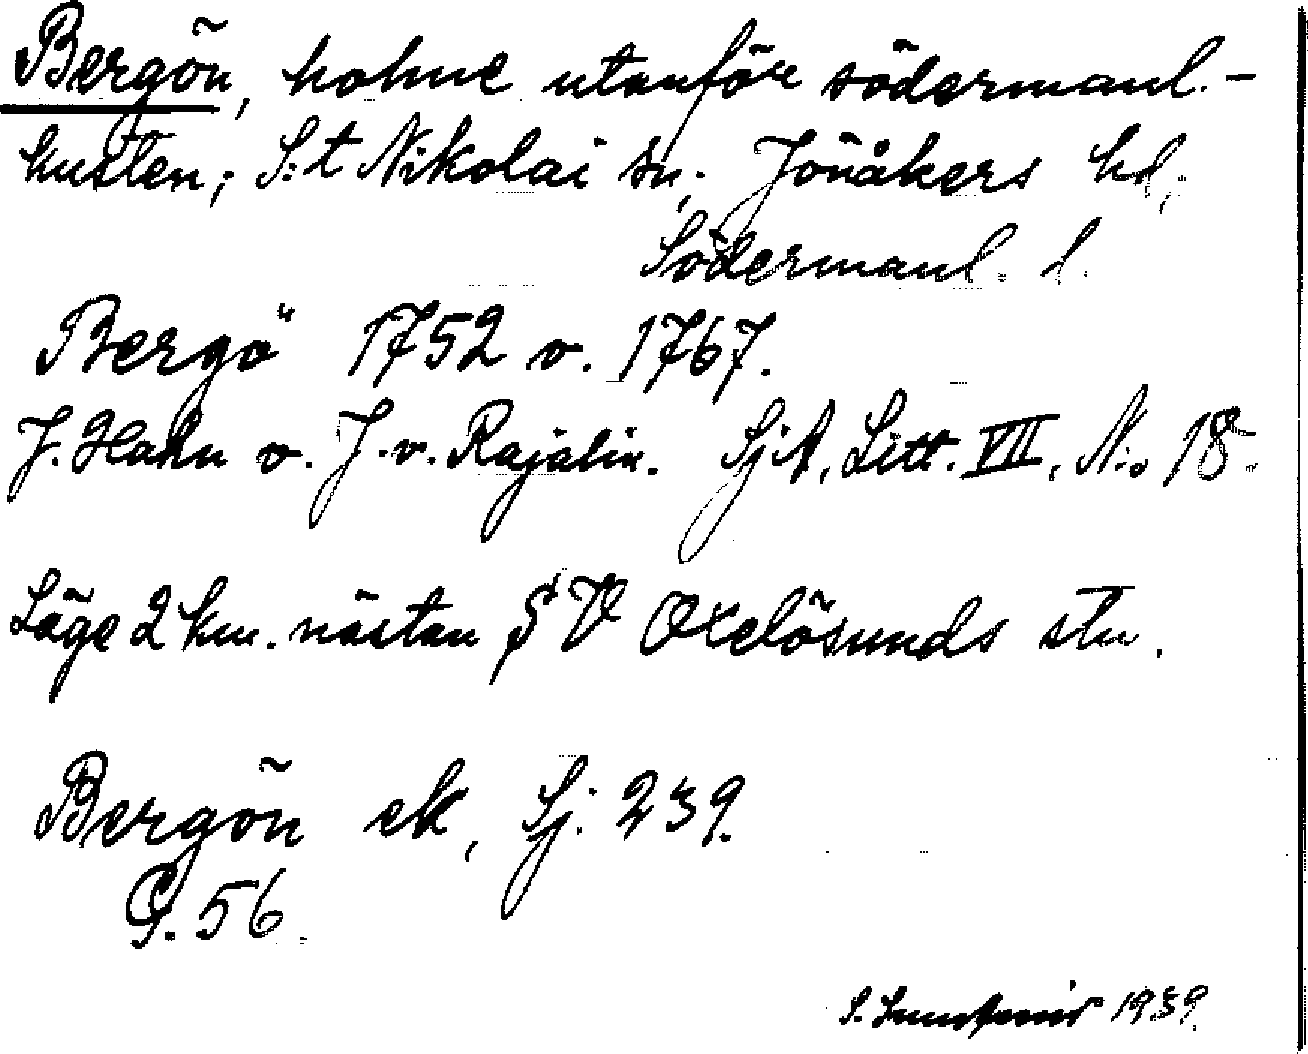 Bergön, holme utanför södermanl.-
kusten; S:t Nikolai sn, Jönåkers hd,
Södermanl. l.
Bergö 1752 o. 1767.
J. Hahn o. J. v. Rajalin. SjA, Litt. VII, N:o 18.
Läge 2 km. nästan SV Oxelösunds stn.
Bergön ek, Sj. 239.
G. 56.
S. 1939.